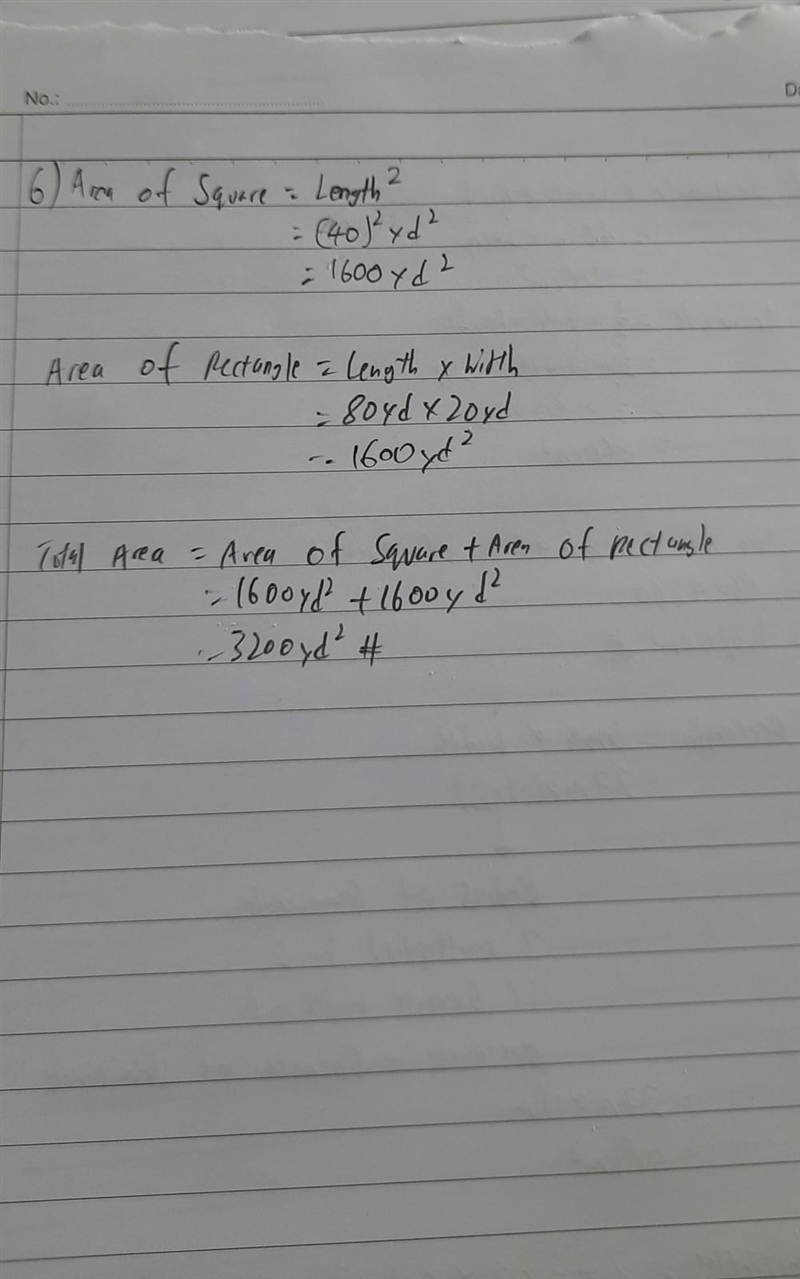 No.:
6) Area of Square = Length²
= (40)² yd²
= 1600 yd²
Area of Rectangle = Length × Width
= 80yd × 20yd
= 1600yd²
Total Area = Area of Square + Area of rectangle
= 1600yd² + 1600yd²
= 3200yd² #